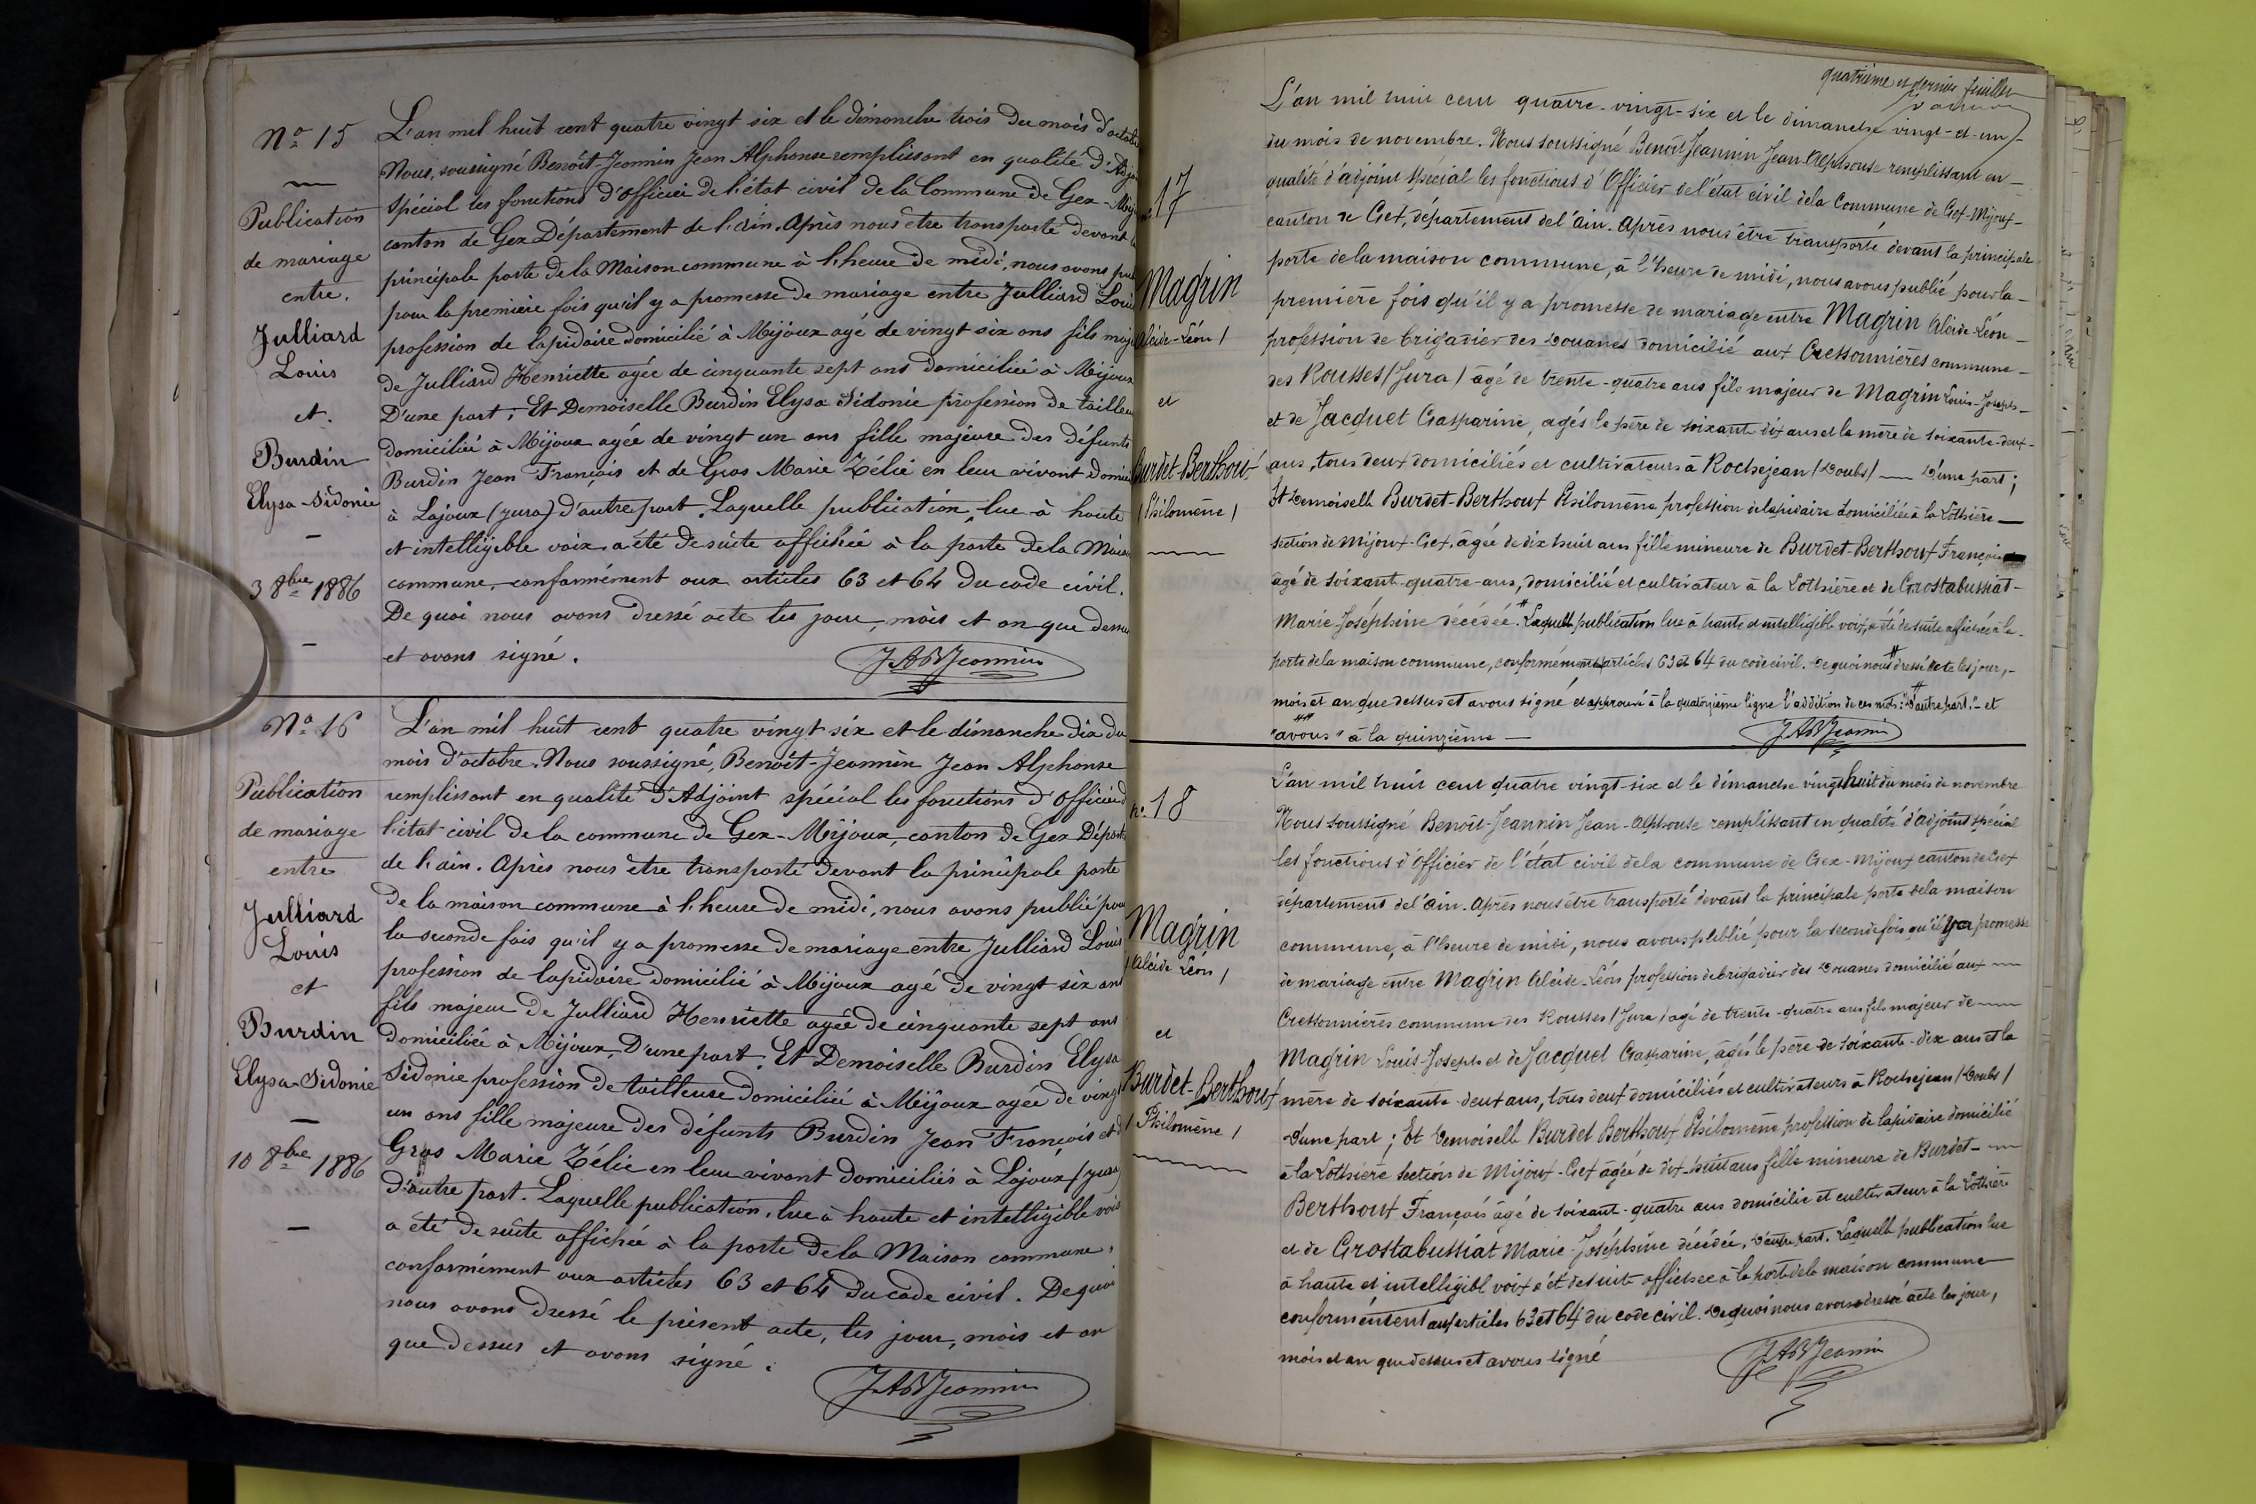 No 15
Publication
de mariage
entre.
Julliard
Louis
et.
Burdin
Elysa-Sidonie
3 8bre 1886
L'an mil huit cent quatre vingt six et le dimanche trois du mois d'octobre
Nous, soussigné Benoît-Jeannin Jean Alphonse remplissant en qualité d'Adjoint
Spécial les fonctions d'Officier de l'état civil de la Commune de Gex-Mijoux
canton de Gex Département de l'ain. Après nous être transporté devant la
principale porte de la Maison commune à l'heure de midi, nous avons publ
pour la première fois qu'il y a promesse de mariage entre Julliard Louis
profession de lapidaire domicilié à Mijoux agé de vingt six ans fils maje
de Julliard Henriette agée de cinquante sept ans domiciliée à Mijoux
D'une part; Et Demoiselle Burdin Elysa Sidonie profession de tailleu
domiciliée à Mijoux agée de vingt un ans fille majeure des défunts
Burdin Jean François et de Gros Marie Zélie en leur vivant domici
à Lajoux (Jura) d'autre part. Laquelle publication, lue à haute
et intelligible voix a été de suite affichée à la porte de la Maison
commune, conformément aux articles 63 et 64 du code civil.
De quoi nous avons dressé acte les jour, mois et an que dessus
et avons signé.
JABJeannin
No 16
Publication
de mariage
entre
Julliard
Louis
et
Burdin
Elysa-Sidonie
10 8bre 1886
L'an mil huit cent quatre vingt six et le dimanche dix du
mois d'octobre. Nous soussigné, Benoît-Jeannin Jean Alphonse
remplissant en qualité d'Adjoint spécial les fonctions d'officier d
l'état civil de la commune de Gex-Mijoux, canton de Gex Départ
de l'ain. Après nous être transporté devant la principale porte
de la maison commune à l'heure de midi, nous avons publié pour
la seconde fois qu'il y a promesse de mariage entre Julliard Louis
profession de lapidaire domicilié à Mijoux agé de vingt six ans
fils majeur de Julliard Henriette agée de cinquante sept ans
domiciliée à Mijoux, D'une part. Et Demoiselle Burdin Elysa
Sidonie profession de tailleuse domiciliée à Mijoux agée de vingt
un ans fille majeure des défunts Burdin Jean François et d
Gros Marie Zélie en leur vivant domiciliés à Lajoux (Jura)
d'autre part. Laquelle publication, lue à haute et intelligible voix
a été de suite affichée à la porte de la Maison commune,
conformément aux articles 63 et 64 du code civil. De quoi
nous avons dressé le présent acte, les jour, mois et an
que dessus et avons signé.
JABJeannin
quatrième et dernier feuillet
17
Magrin
Alcide-Léon /
et
Burdet-Berthout
/ Philomène /
L'an mil huit cent quatre-vingt-six et le dimanche vingt-et-un
du mois de novembre. Nous soussigné Benoît-Jeannin Jean-Alphonse remplissant en
qualité d'adjoint spécial les fonctions d'Officier de l'état civil de la Commune de Gex-Mijoux
canton de Gex, département de l'ain. Après nous être transporté devant la principale
porte de la maison commune, à l'heure de midi, nous avons publié pour la
première fois qu'il y a promesse de mariage entre Magrin Alcide-Léon
profession de brigadier des Douanes domicilié aux Cressonnières commune
des Rousses / Jura / agé de trente-quatre ans fils majeur de Magrin Louis-Joseph
et de Jacquet Gasparine, agés le père de soixante dix ans et la mère de soixante-deux
ans, tous deux domiciliés et cultivateurs à Rochejean / Doubs / D'une part;
Et Demoiselle Burdet-Berthout Philomène profession de lapidaire domiciliée à la Lothière
section de Mijoux-Gex, agée de dix huit ans fille mineure de Burdet-Berthout François
agé de soixante-quatre ans, domicilié et cultivateur à la Lothière et de Grostabussiat
Marie Joséphine décédée. # Laquelle publication lue à haute et intelligible voix, a été de suite affichée à la
porte de la maison commune, conformément articles 63 et 64 du code civil. De quoi nous # dressé acte les jour,
mois et an que dessus et avons signé et approuvé à la quatorzième ligne l'addition de ces mots: # "D'autre part." et
## "avons" à la quinzième
JABJeannin
No 18
Magrin
/ Alcide Léon /
et
Burdet-Berthout
/ Philomène /
L'an mil huit cent quatre vingt-six et le dimanche vingt huit du mois de novembre
Nous soussigné Benoît-Jeannin Jean-Alphonse remplissant en qualité d'adjoint spécial
les fonctions d'Officier de l'état civil de la commune de Gex-Mijoux canton de Gex
département de l'ain. Après nous être transporté devant la principale porte de la maison
commune, à l'heure de midi, nous avons plublié pour la seconde fois qu'il y a promesse
de mariage entre Magrin Alcide-Léon profession de brigadier des Douanes domicilié aux
Cressonnières commune des Rousses / Jura / agé de trente-quatre ans fils majeur de
Magrin Louis-Joseph et de Jacquet Gasparine, agés le père de soixante-dix ans et la
mère de soixante-deux ans, tous deux domiciliés et cultivateurs à Rochejean / Doubs /
D'une part; Et Demoiselle Burdet Berthout Philomène profession de lapidaire domicilié
à la Lothière section de Mijoux-Gex agée de dix-huit ans fille mineure de Burdet-
Berthout François agé de soixante-quatre ans domicilié et cultivateur à la Lothière
et de Grostabussiat Marie-Joséphine décédée, D'autre part. Laquelle publication lue
à haute et intelligibl voix a été de suite affichée à la porte de la maison commune
conformément aux articles 63 et 64 du code civil. De quoi nous avons dressé acte les jour,
mois et an que dessus et avons signé
JABJeannin